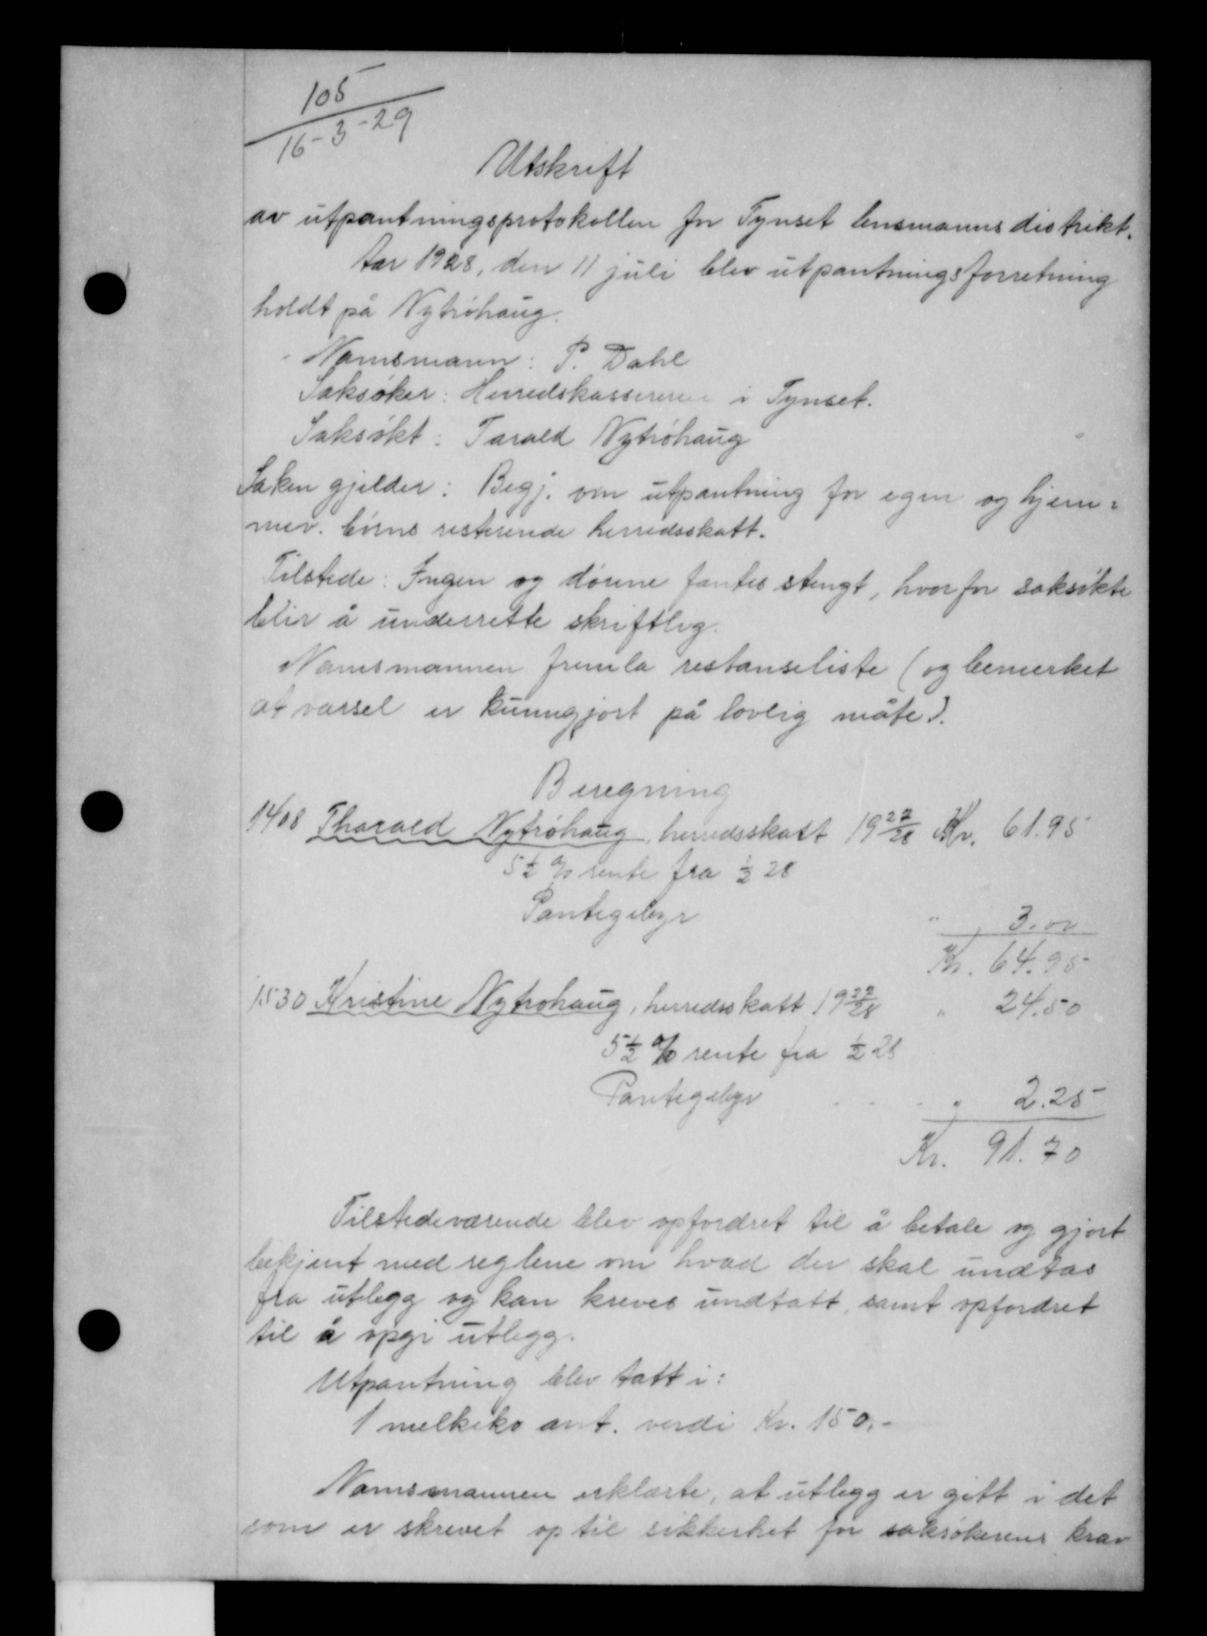 105
16-3-29
Utskrift
av utpantningsprotokollen for Tynset lensmannsdistrikt.
Aar 1928, den 11 juli blev utpantningsforretning
holdt på Nytrøhaug.
Namsmann: P. Dahl
Saksøker: Herredskassereren i Tynset.
Saksøkt: Tarald Nytrøhaug
Saken gjelder: Begj. om utpantning for egen og hjem=
mev. børns resterende herredsskatt.
Tilstede: Ingen og dørene fantes stengt, hvorfor saksøkte
blir å underrette skriftlig.
Namsmannen fremla restanseliste (og bemerket
at varsel er kunngjort på lovlig måte).
Beregning
1408 Tharald Nytrøhaug, herredsskatt 1927/28 Kr. 61.95
5½ % rente fra ½ 28
Pantegebyr " 3.00
Kr. 64.95
1530 Kristine Nytrøhaug, herredsskatt 1927/28 " 24.50
5½ % rente fra ½ 28
Pantegebyr " 2.25
Kr. 91.70
Tilstedeværende blev opfordret til å betale og gjort
bekjent med reglene om hvad der skal undtas
fra utlegg og kan kreves undtatt, samt opfordret
til å opgi utlegg.
Utpantning blev tatt i:
1 melkeko ant. verdi Kr. 150.-
Namsmannen erklærte, at utlegg er gitt i det
som er skrevet op til sikkerhet for saksøkerens krav